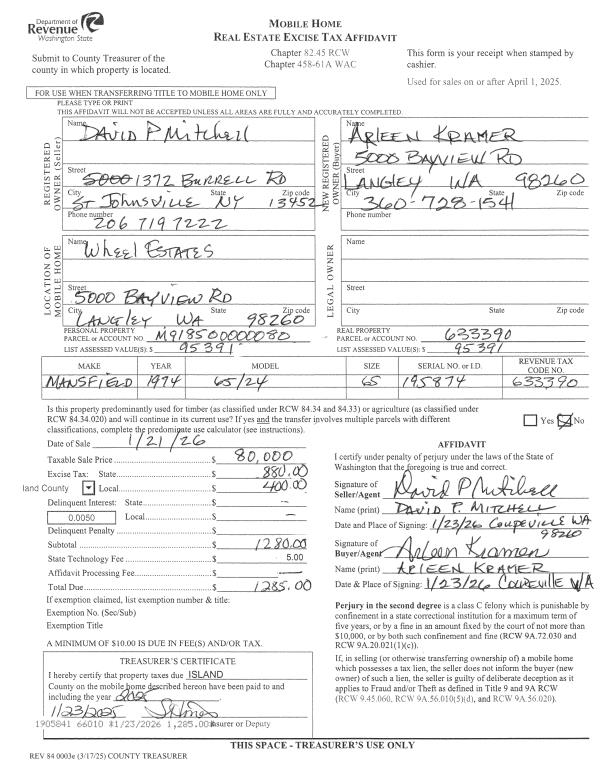 Department of
Revenue
Washington State
MOBILE HOME
REAL ESTATE EXCISE TAX AFFIDAVIT
Submit to County Treasurer of the
county in which property is located.
Chapter 82.45 RCW
Chapter 458-61A WAC
This form is your receipt when stamped by
cashier.
Used for sales on or after April 1, 2025.
FOR USE WHEN TRANSFERRING TITLE TO MOBILE HOME ONLY
PLEASE TYPE OR PRINT
THIS AFFIDAVIT WILL NOT BE ACCEPTED UNLESS ALL AREAS ARE FULLY AND ACCURATELY COMPLETED.
REGISTERED OWNER (Seller)
Name DAVID P MITCHELL
Street 5000 1372 BURRELL RD
City State Zip code
ST JOHNSVILLE NY 13452
Phone number
206 719 7222
NEW REGISTERED OWNER (Buyer)
Name ARLEEN KRAMER
5000 BAYVIEW RD
Street
LANGLEY WA 98260
City State Zip code
360-728-1541
Phone number
LOCATION OF MOBILE HOME
Name WHEEL ESTATES
Street
5000 BAYVIEW RD
City State Zip code
LANGLEY WA 98260
LEGAL OWNER
Name
Street
City State Zip code
PERSONAL PROPERTY
PARCEL or ACCOUNT NO. M91850000080
LIST ASSESSED VALUE(S): $ 95391
REAL PROPERTY
PARCEL or ACCOUNT NO. 633390
LIST ASSESSED VALUE(S): $ 95391
MAKE YEAR MODEL SIZE SERIAL NO. or I.D. REVENUE TAX CODE NO.
MANSFIELD 1974 65/24 65 195874 633390
Is this property predominantly used for timber (as classified under RCW 84.34 and 84.33) or agriculture (as classified under
RCW 84.34.020) and will continue in its current use? If yes and the transfer involves multiple parcels with different
classifications, complete the predominate use calculator (see instructions).
Yes No
Date of Sale 1/21/26
Taxable Sale Price $ 80,000
Excise Tax: State $ 880.00
land County Local $ 400.00
Delinquent Interest: State $ —
0.0050 Local $ —
Delinquent Penalty $ —
Subtotal $ 1280.00
State Technology Fee $ 5.00
Affidavit Processing Fee $ —
Total Due $ 1285.00
If exemption claimed, list exemption number & title:
Exemption No. (Sec/Sub)
Exemption Title
A MINIMUM OF $10.00 IS DUE IN FEE(S) AND/OR TAX.
AFFIDAVIT
I certify under penalty of perjury under the laws of the State of
Washington that the foregoing is true and correct.
Signature of
Seller/Agent David P Mitchell
Name (print) DAVID P. MITCHELL
Date and Place of Signing: 1/23/26 COUPEVILLE WA
98260
Signature of
Buyer/Agent Arleen Kramer
Name (print) ARLEEN KRAMER
Date & Place of Signing: 1/23/26 COUPEVILLE WA
Perjury in the second degree is a class C felony which is punishable by
confinement in a state correctional institution for a maximum term of
five years, or by a fine in an amount fixed by the court of not more than
$10,000, or by both such confinement and fine (RCW 9A.72.030 and
RCW 9A.20.021(1)(c)).
If, in selling (or otherwise transferring ownership of) a mobile home
which possesses a tax lien, the seller does not inform the buyer (new
owner) of such a lien, the seller is guilty of deliberate deception as it
applies to Fraud and/or Theft as defined in Title 9 and 9A RCW
(RCW 9.45.060, RCW 9A.56.010(5)(d), and RCW 9A.56.020).
TREASURER'S CERTIFICATE
I hereby certify that property taxes due ISLAND
County on the mobile home described hereon have been paid to and
including the year 2025
1/23/2025
1905841 66010 01/23/2026 1,285.00 Treasurer or Deputy
THIS SPACE - TREASURER'S USE ONLY
REV 84 0003e (3/17/25) COUNTY TREASURER